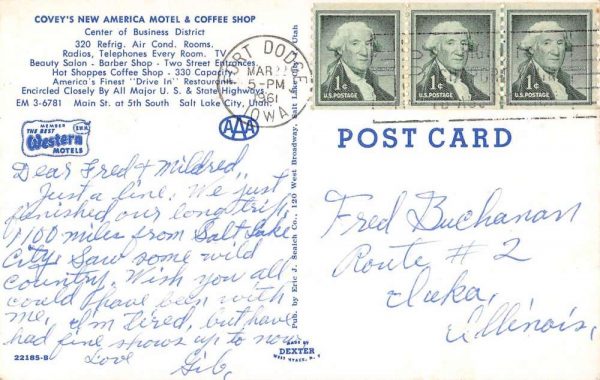 COVEY'S NEW AMERICA MOTEL & COFFEE SHOP
Center of Business District
320 Refrig. Air Cond. Rooms.
Radios, Telephones Every Room. TV.
Beauty Salon - Barber Shop - Two Street Entrances.
Hot Shoppes Coffee Shop - 330 Capacity.
America's Finest "Drive In" Restaurant.
Encircled Closely By All Major U. S. & State Highways.
EM 3-6781 Main St. at 5th South Salt Lake City, Utah
MEMBER
THE BEST
Western
MOTELS
AAA
FORT DODGE
MAR
5-PM
1961
IOWA
1¢
U.S. POSTAGE
1¢
U.S. POSTAGE
1¢
U.S. POSTAGE
POST CARD
Dear Fred & Mildred,
Just a fine. We just
finished our long trip,
1100 miles from Salt Lake
City. Saw some wild
country. Wish you all
could have been with
me, I'm tired, but have
had fine shows up to now
Love
Gib,
22185-B
Pub. by Eric J. Seaich Co., 120 West Broadway, Salt Lake City, Utah
MADE BY
DEXTER
WEST NYACK, N. Y.
Fred Buchanan
Route # 2
Iuka,
Illinois,